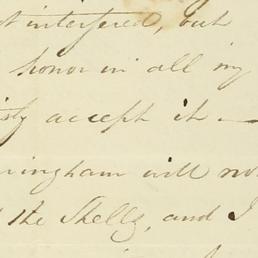 interfered, but
honor in all my
accept it —
will
the Shells, and I